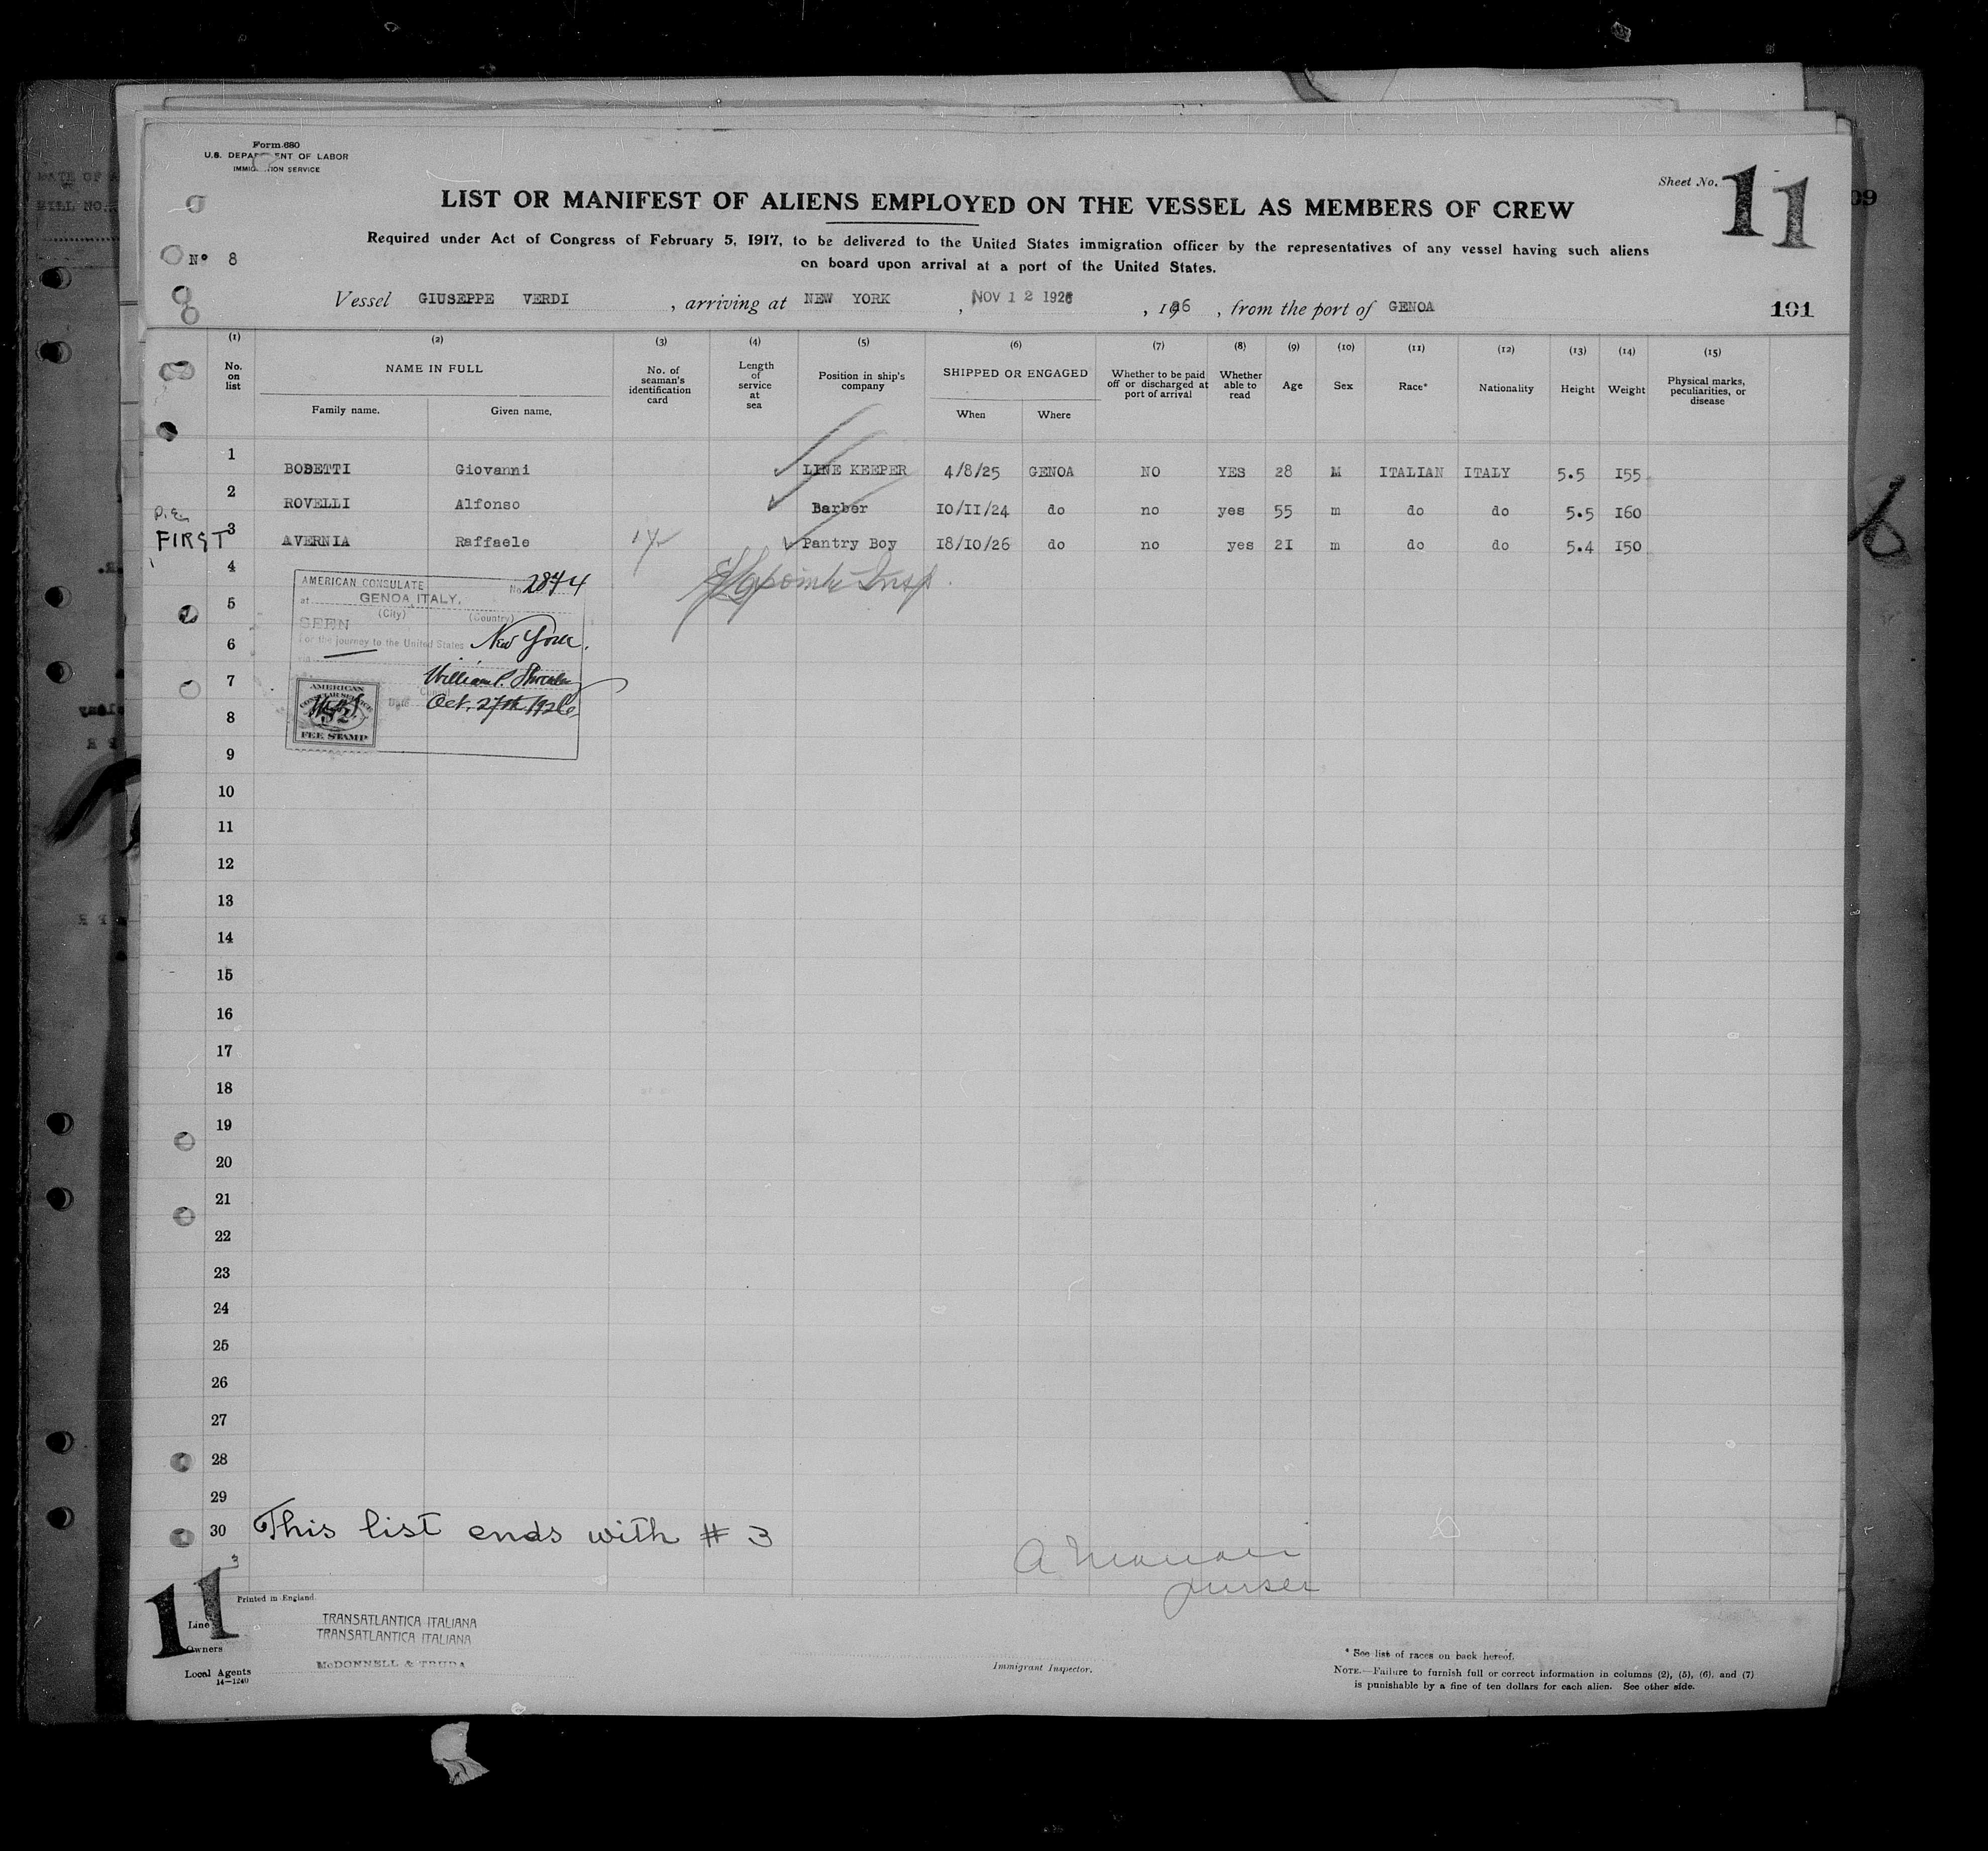 Form 680
U.S. DEPARTMENT OF LABOR
IMMIGRATION SERVICE
Sheet No. 11
LIST OR MANIFEST OF ALIENS EMPLOYED ON THE VESSEL AS MEMBERS OF CREW
Required under Act of Congress of February 5, 1917, to be delivered to the United States immigration officer by the representatives of any vessel having such aliens
on board upon arrival at a port of the United States.
Nº 8
Vessel GIUSEPPE VERDI , arriving at NEW YORK , NOV 12 1926 , 1926 , from the port of GENOA
101
(1) (2) (3) (4) (5) (6) (7) (8) (9) (10) (11) (12) (13) (14) (15)
No. on list
NAME IN FULL
Family name. Given name.
No. of seaman's identification card
Length of service at sea
Position in ship's company
SHIPPED OR ENGAGED
When Where
Whether to be paid off or discharged at port of arrival
Whether able to read
Age
Sex
Race*
Nationality
Height
Weight
Physical marks, peculiarities, or disease
1 BOSETTI Giovanni LINE KEEPER 4/8/25 GENOA NO YES 28 M ITALIAN ITALY 5.5 155
2 ROVELLI Alfonso Barber 10/11/24 do no yes 55 m do do 5.5 160
P.E.
FIRST 3 AVERNIA Raffaele 1 Yr Pantry Boy 18/10/26 do no yes 21 m do do 5.4 150
4
AMERICAN CONSULATE No. 2844
at GENOA, ITALY.
(City) (Country)
5
SEEN
For the journey to the United States New York.
6
via
7
William P.
Consul
Date Oct. 27th 1926
AMERICAN
CONSULAR SERVICE
$2
FEE STAMP
8
9
10
11
12
13
14
15
16
17
18
19
20
21
22
23
24
25
26
27
28
29
30 This list ends with # 3
3
purser
11
Printed in England
Line TRANSATLANTICA ITALIANA
Owners TRANSATLANTICA ITALIANA
Local Agents McDONNELL & TRUDA
14—1240
Immigrant Inspector.
* See list of races on back hereof.
NOTE.—Failure to furnish full or correct information in columns (2), (5), (6), and (7)
is punishable by a fine of ten dollars for each alien. See other side.